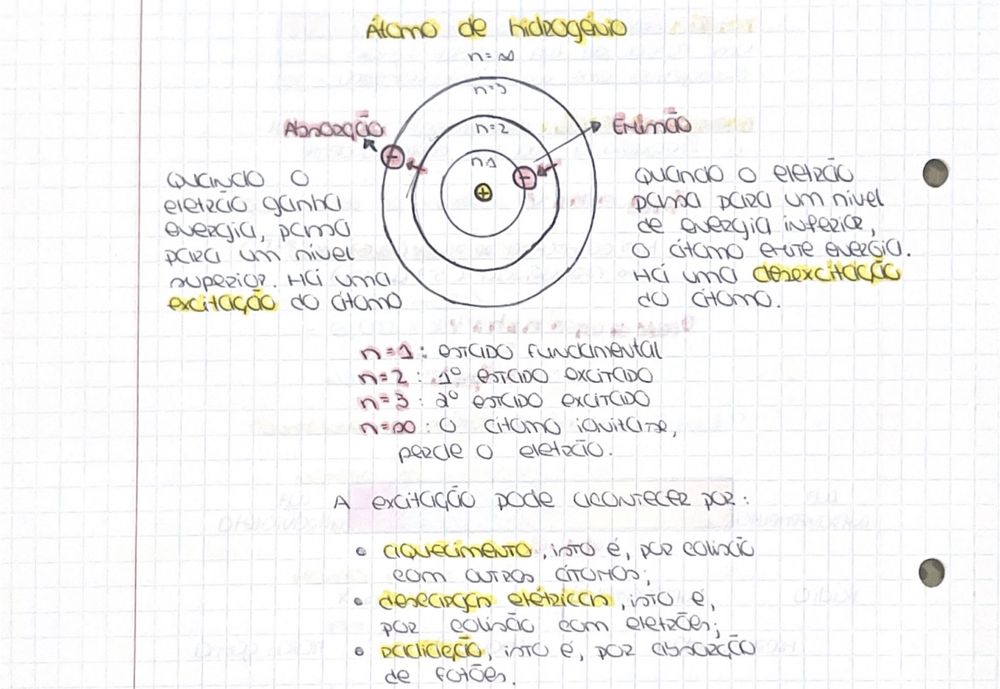 Átomo de hidrogénio
n=∞
n=3
n=2
n=1
Absorção
Emissão
+
-
-
Quando o
eletrão ganha
energia, passa
para um nível
superior. Há uma
excitação do átomo
Quando o eletrão
passa para um nível
de energia inferior,
o átomo emite energia.
Há uma desexcitação
do átomo.
n=1: estado fundamental
n=2: 1º estado excitado
n=3: 2º estado excitado
n=∞: o átomo ioniza-se,
perde o eletrão.
A excitação pode acontecer por:
• aquecimento, isto é, por colisão
com outros átomos;
• descargas elétricas, isto é,
por colisão com eletrões;
• radiação, isto é, por absorção
de fotões.